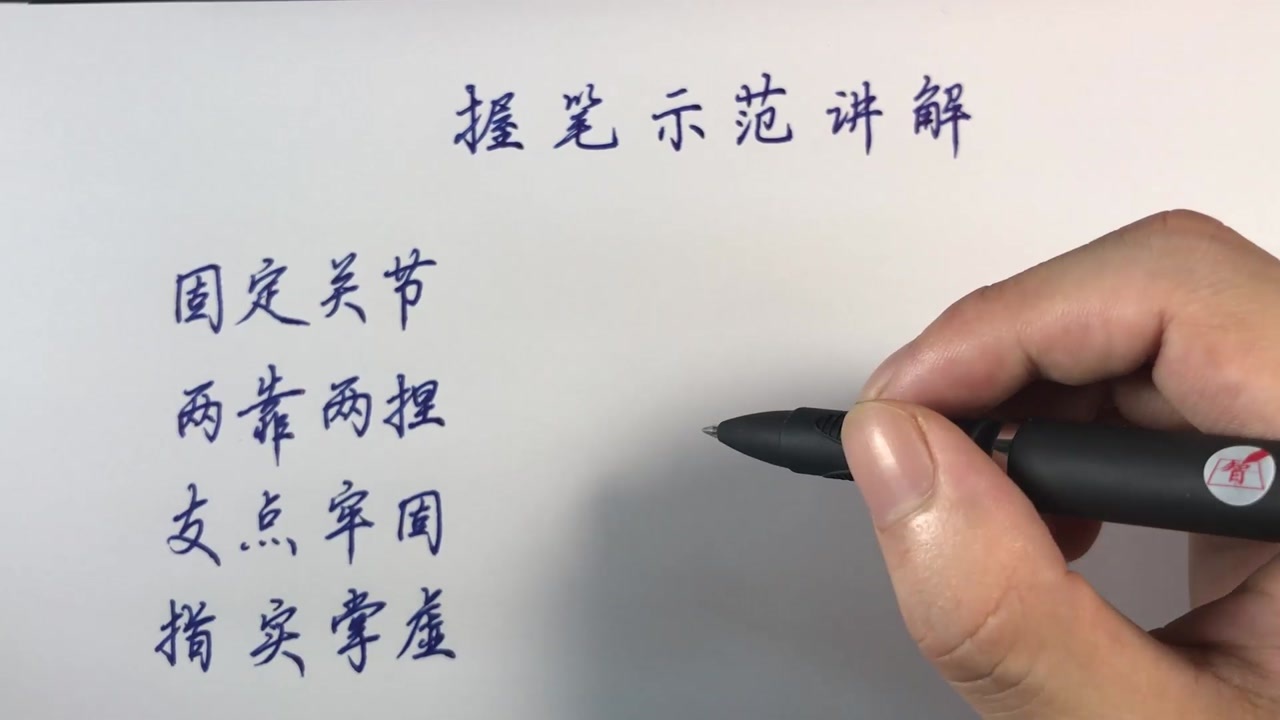 握笔示范讲解
固定关节
两靠两捏
支点牢固
指实掌虚